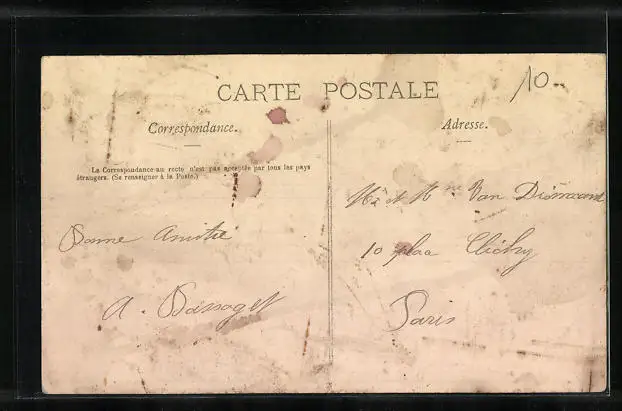 CARTE POSTALE
10
Correspondance.
Adresse.
La Correspondance au recto n'est pas acceptée par tous les pays
étrangers. (Se renseigner à la Poste.)
Mr et Mme Van
Bonne Amitié
10 place Clichy
A.
Paris